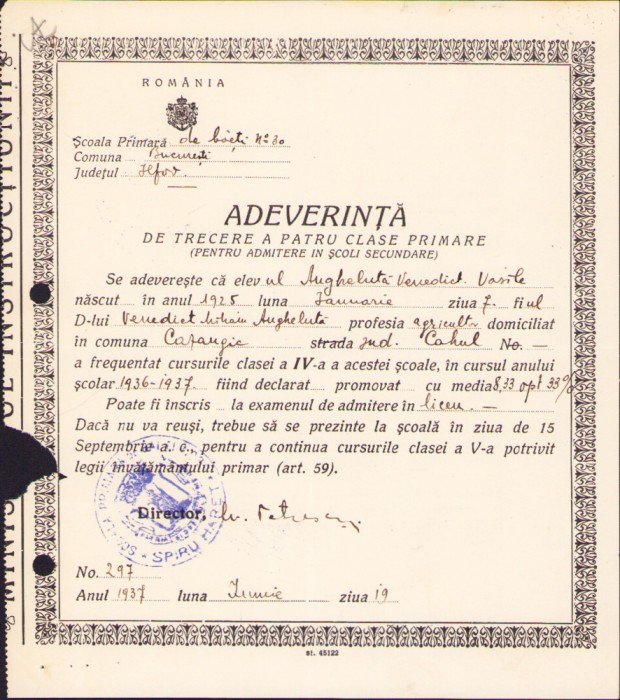 ROMÂNIA
Școala Primară de băeți No 30
Comuna București
Județul Ilfov.
ADEVERINȚĂ
DE TRECERE A PATRU CLASE PRIMARE
(PENTRU ADMITERE IN ȘCOLI SECUNDARE)
Se adeverește că elev ul Angheluță Venedict Vasile
născut în anul 1925 luna Ianuarie ziua 7. fi ul
D-lui Venedict Mihain Angheluță profesia agricultor domiciliat
în comuna strada jud. Cahul No. —
a frequentat cursurile clasei a IV-a a acestei școale, în cursul anului
școlar 1936-1937. fiind declarat promovat cu media 8,33 opt 33%
Poate fi înscris la examenul de admitere în liceu. —
Dacă nu va reuși, trebue să se prezinte la școală în ziua de 15
Septembrie a. c., pentru a continua cursurile clasei a V-a potrivit
legii învățământului primar (art. 59).
Director,
SPIRU HARET
No. 297
Anul 1937 luna Iunie ziua 19
st. 45122
MINIS UL INSTRUCȚIUNII